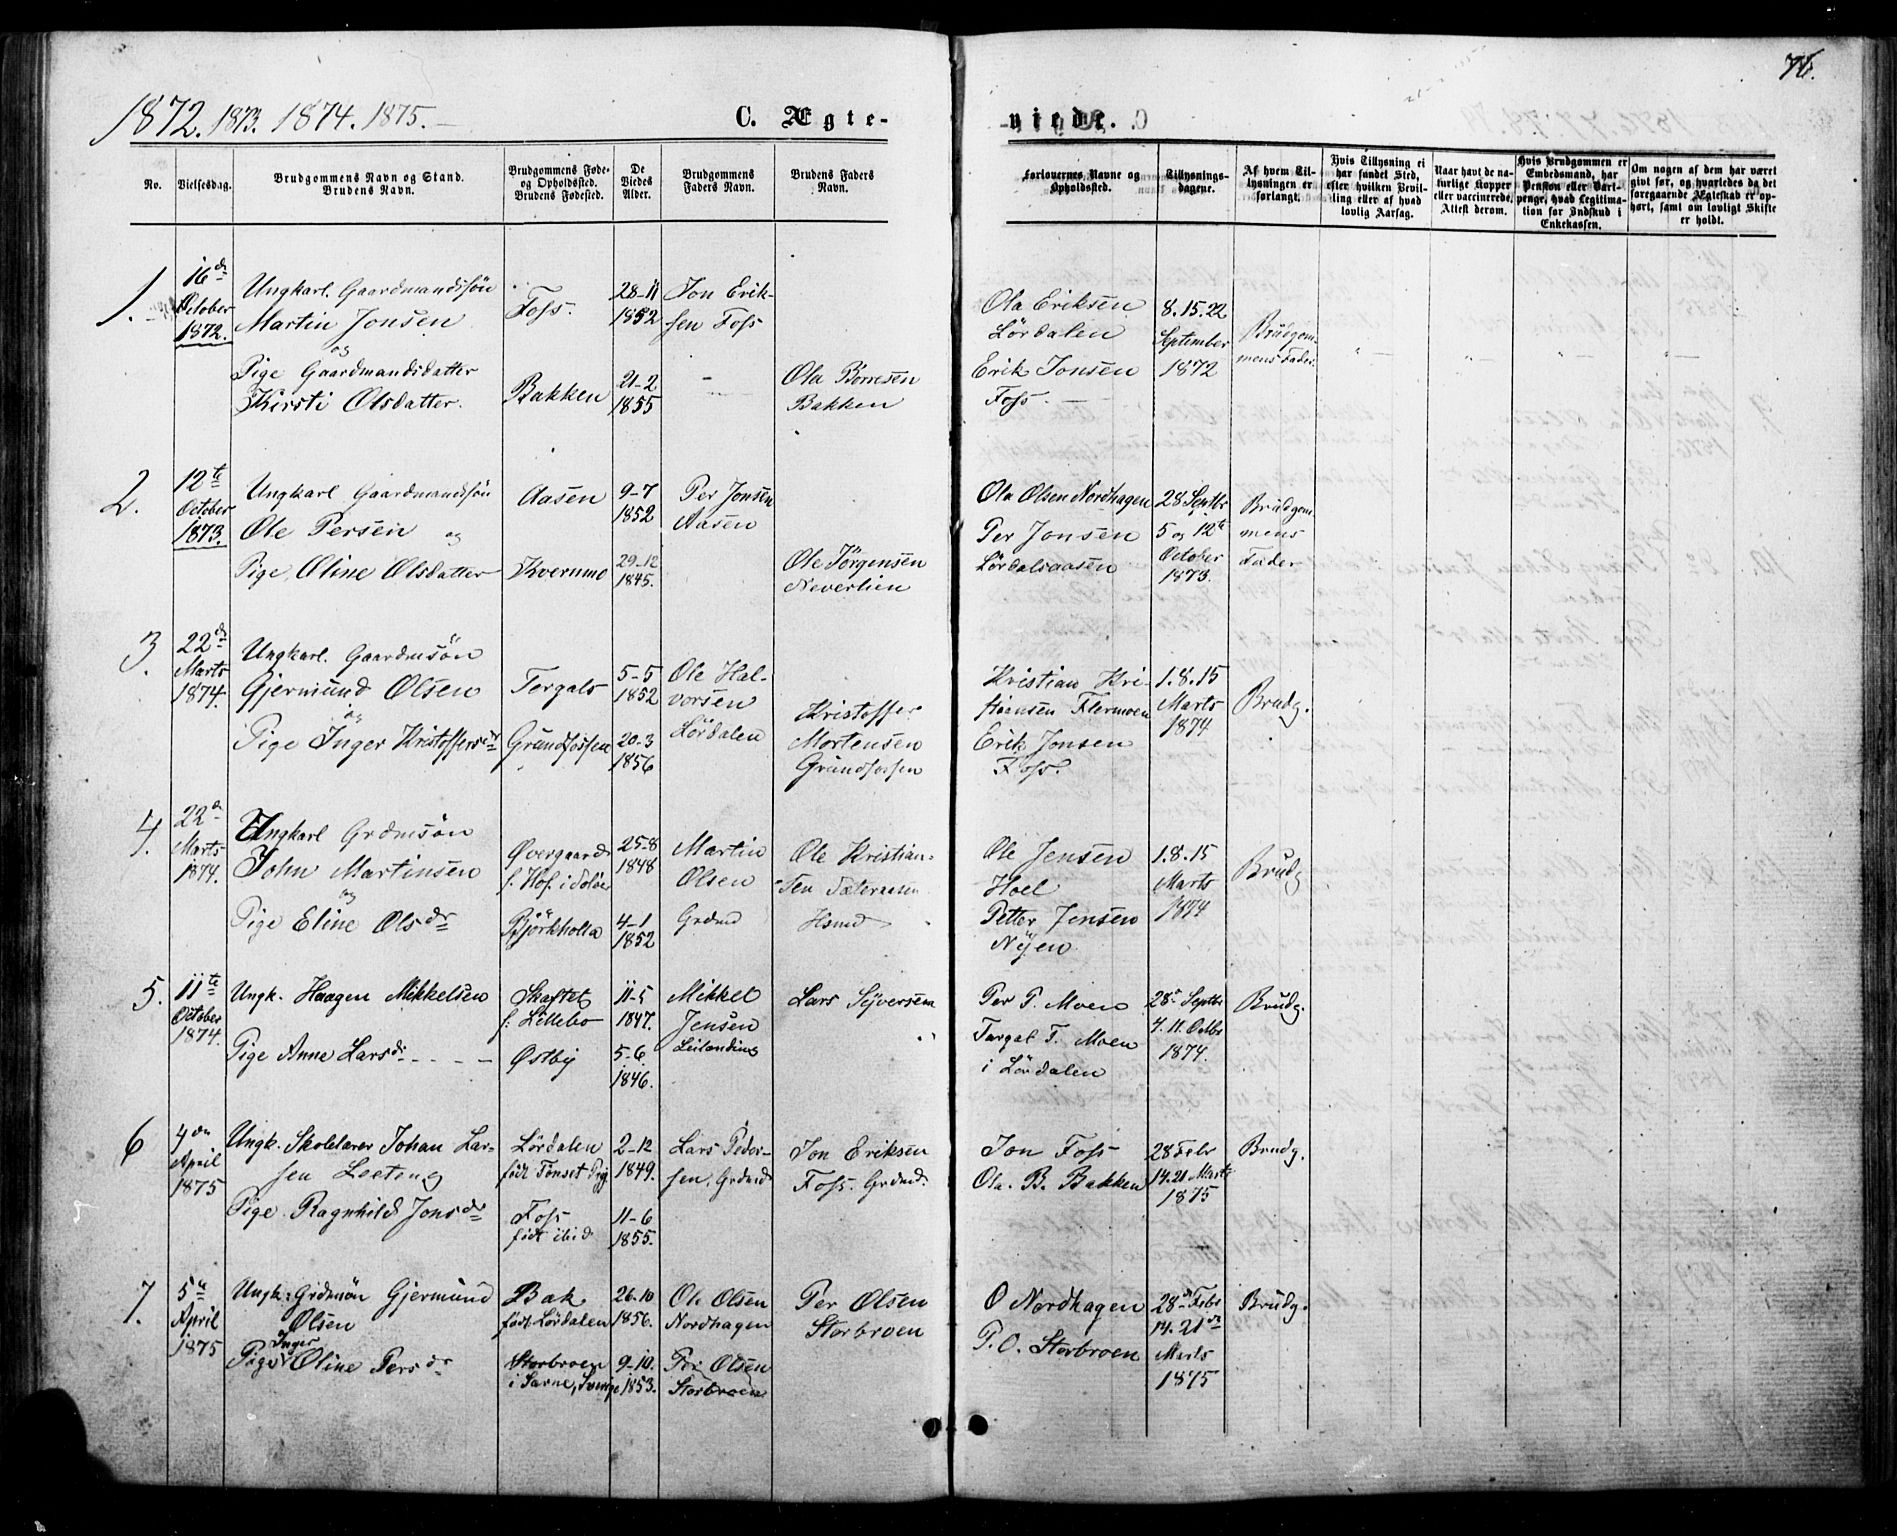 1872. 1873. 1874. 1875. —
C. Ægte-
viede.
No.
Vielsesdag.
Brudgommens Navn og Stand.
Brudens Navn.
Brudgommens Føde-
og Opholdssted.
Brudens Fødested.
De
Viedes
Alder.
Brudgommens
Faders Navn.
Brudens Faders
Navn.
Forlovernes Navne og
Opholdssted.
Tillysnings-
dagene.
Af hvem Til-
lysningen er
forlangt.
Hvis Tillysning ei
har fundet Sted,
efter hvilken Bevil-
ling eller af hvad
lovlig Aarsag.
Naar havt de na-
turlige Kopper
eller vaccinerede,
Attest derom.
Hvis Brudgommen er
Embedsmand, har
Pension eller Vart-
penge, hvad Legitima-
tion for Indskud i
Enkekassen.
Om nogen af dem har været
givt før, og hvorledes da det
foregaaende Ægteskab er op-
hørt, samt om lovligt Skifte
er holdt.
1.
16de
October
1872.
Ungkarl. Gaardmandssön
Martin Jonsen
og
Pige Gaardmandsdatter
Kirsti Olsdatter.
Foss.
Bakken
28-11
1852
21-2
1855
Jon Erik-
sen Foss
Ola Börresen
Bakken
Ola Eriksen
Lördalen
Erik Jonsen
Foss. —
8. 15. 22
September
1872
Brudgom-
mens Fader.
2.
12te
October
1873.
Ungkarl Gaardmandssön
Ole Persen og
Pige, Oline Olsdatter
Aasen
Kvernmo
9-7
1852
29-12
1845.
Per Jonsen
Aasen
Ole Jörgensen
Neverlien
Ola Olsen Nordhagen
Per Jonsen
Lördalsaasen
28 Septbr
5 og 12te
October
1873.
Brudgom-
mens
Fader
3.
22de
Marts
1874.
Ungkarl. Gaardmsön
Gjermund Olsen
og
Pige Inger Kristoffersdr
Tergals
Grundfossen
5-5
1852
20-3
1856
Ole Hal-
vorsen
Lördalen
Kristoffer
Mortensen
Grundfossen
Kristian Kri-
stiansen Flermoen
Erik Jonsen
Foss.
1. 8. 15
Marts
1874
Brudg.
4.
22de
Marts
1874.
Ungkarl Grdmsön
John Martinsen
og
Pige Eline Olsdr
Øvergaard
f. Hof. i Soløer
Björkholla
25-8
1848
4-1
1852
Martin
Olsen
Grdmd
Ole Kristian-
sen
Hsmd
Ole Jensen
Hoel
Petter Jensen
Nÿen
1. 8. 15
Marts
1874
Brudg
5.
11te
October
1874.
Ungk. Haagen Mikkelsen
Pige Anne Larsdr - - - -
Skaftet
f: Lillebo
Østby
11-5
1847.
5-6
1846.
Mikkel
Jensen
Leilending
Lars Syversen
Per P. Moen
Targal T. Moen
i Lördalen
28de Septbr
4. 11. Octbr
1874.
Brudg.
6
4de
April
1875
Ungk. Skolelærer Johan Lar-
sen Leeteng
Pige. Ragnhild Jonsdr
Lördalen
født Tönset Prg.
Foss
født ibid
2-12
1849.
11-6
1855.
Lars Peder-
sen, Grdmd
Jon Eriksen
Foss. Grdmd.
Jon Foss
Ola. B. Bakken
28 Febr
14. 21. Marts
1875
Brudg.
7.
5te
April
1875
Ungk: Grdmsøn Gjermund
Olsen
Inger
Pige Oline Persdr
Bak
født Lördalen
Storbroen
i Særne, Sverige
26-10
1856.
9-10.
1853.
Ole Olsen
Nordhagen
Per Olsen
Storbroen
Per Olsen
Storbroen
O Nordhagen
P. O. Storbroen
28de Febr
14. 21de
Marts
1875
Brudg.